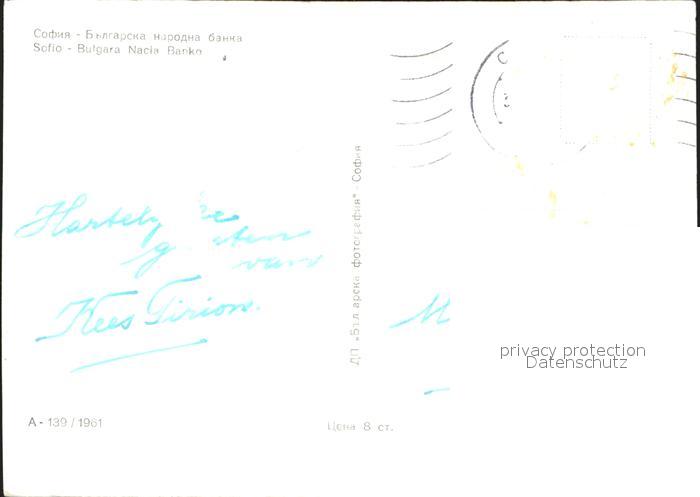 София - Българска народна банка
Sofio - Bulgara Nacia Banko
Hartelijke
groeten
van
Kees Tirion.
ДП „Българска фотография“ - София
M
privacy protection
Datenschutz
А - 139 / 1961
Цена 8 ст.